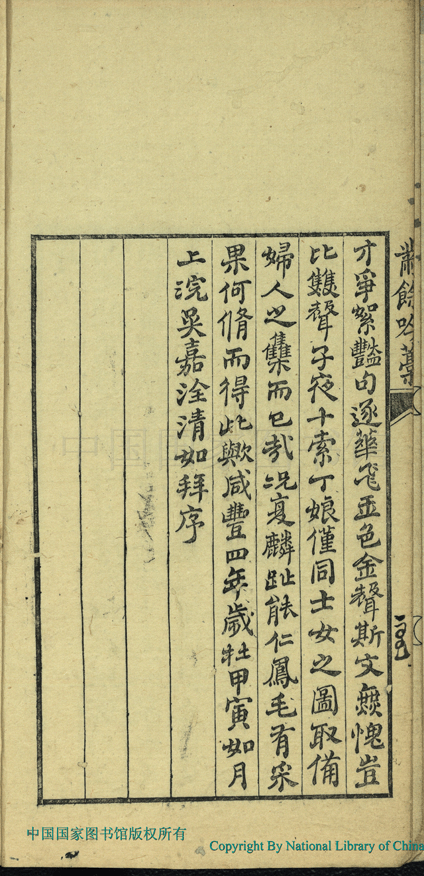 才爭絮豔句逐華飛玉色金聲斯文無愧豈
比雙聲子夜十索丁娘僅同士女之圖取備
婦人之集而已哉況夏麟趾能仁鳳毛有采
果何脩而得此歟咸豐四年歲在甲寅如月
上浣吳嘉淦清如拜序
餘吟藁
中国国家图书馆版权所有
Copyright By National Library of China